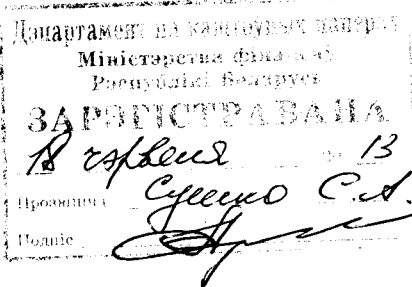 Дэпартамент па каштоўных паперах
Міністэрства фінансаў
Рэспублікі Беларусь
ЗАРЭГІСТРАВАНА
18 чэрвеня 13
Прозвішча Сушко С.А.
Подпіс